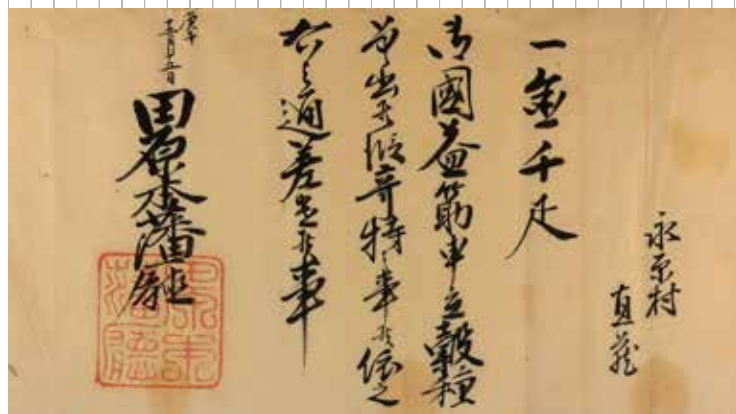 永原村
直蔵
一金千疋
御國益筋申立穀種
出候段奇特之事候依之
右之通差遣候事
庚午
月五日
田原本藩廰